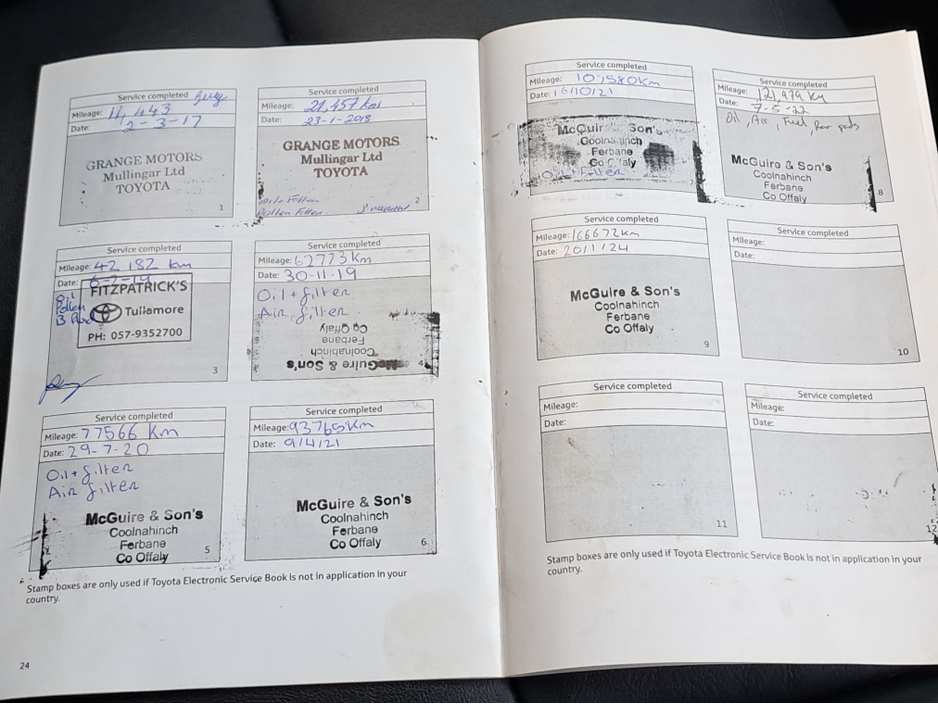 Service completed
Mileage: 11,443
Date: 2-3-17
GRANGE MOTORS
Mullingar Ltd
TOYOTA
1
Service completed
Mileage: 21,457 kms
Date: 23-1-2018
GRANGE MOTORS
Mullingar Ltd
TOYOTA
Pollen Filter
2
Service completed
Mileage: 42 182 km
Date: 6-2-19
Oil
Pollen
FITZPATRICK'S
Tullamore
PH: 057-9352700
3
Service completed
Mileage: 62773 Km
Date: 30-11-19
Oil + filter
Air filter
McGuire & Son's
Coolnahinch
Ferbane
Co Offaly
4
Service completed
Mileage: 77566 Km
Date: 29-7-20
Oil + filter
Air filter
McGuire & Son's
Coolnahinch
Ferbane
Co Offaly
5
Service completed
Mileage: 93765Km
Date: 9/4/21
McGuire & Son's
Coolnahinch
Ferbane
Co Offaly
6
Stamp boxes are only used if Toyota Electronic Service Book is not in application in your
country.
24
Service completed
Mileage: 107580Km
Date: 16/10/21
McGuire & Son's
Coolnahinch
Ferbane
Co Offaly
Oil + filter
Service completed
Mileage: 121,979 Km
Date: 7-5-22
Oil, Air, Fuel, Rear pads
McGuire & Son's
Coolnahinch
Ferbane
Co Offaly
8
Service completed
Mileage: 166672km
Date: 20/11/24
McGuire & Son's
Coolnahinch
Ferbane
Co Offaly
9
Service completed
Mileage:
Date:
10
Service completed
Mileage:
Date:
11
Service completed
Mileage:
Date:
12
Stamp boxes are only used if Toyota Electronic Service Book is not in application in your
country.